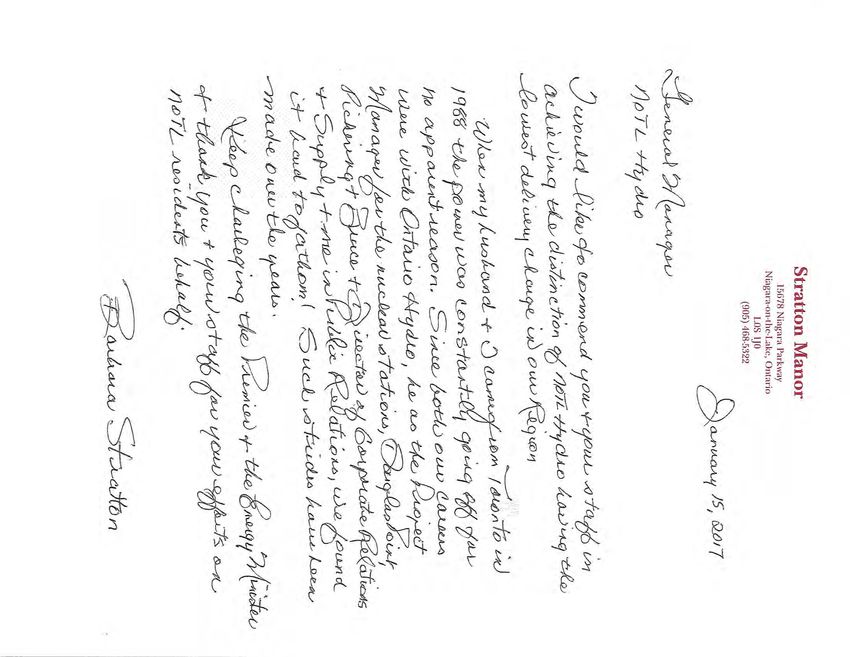 Stratton Manor
15678 Niagara Parkway
Niagara-on-the-Lake, Ontario
L0S 1J0
(905) 468-5322
January 15, 2017
General Manager
NOTL Hydro
I would like to commend you & your staff in
achieving the distinction of NOTL Hydro having the
lowest delivery charge in our Region
When my husband & I came from Toronto in
1988 the power was constantly going off for
no apparent reason. Since both our careers
were with Ontario Hydro, he as the Project
Manager for the nuclear stations, Douglas Point,
Pickering & Bruce & Director of Corporate Relations
& Supply & me in Public Relations, we found
it hard to fathom! Such strides have been
made over the years.
Keep challenging the Premier & the Energy Minister
& thank you & your staff for your efforts on
NOTL residents behalf.
Barbara Stratton